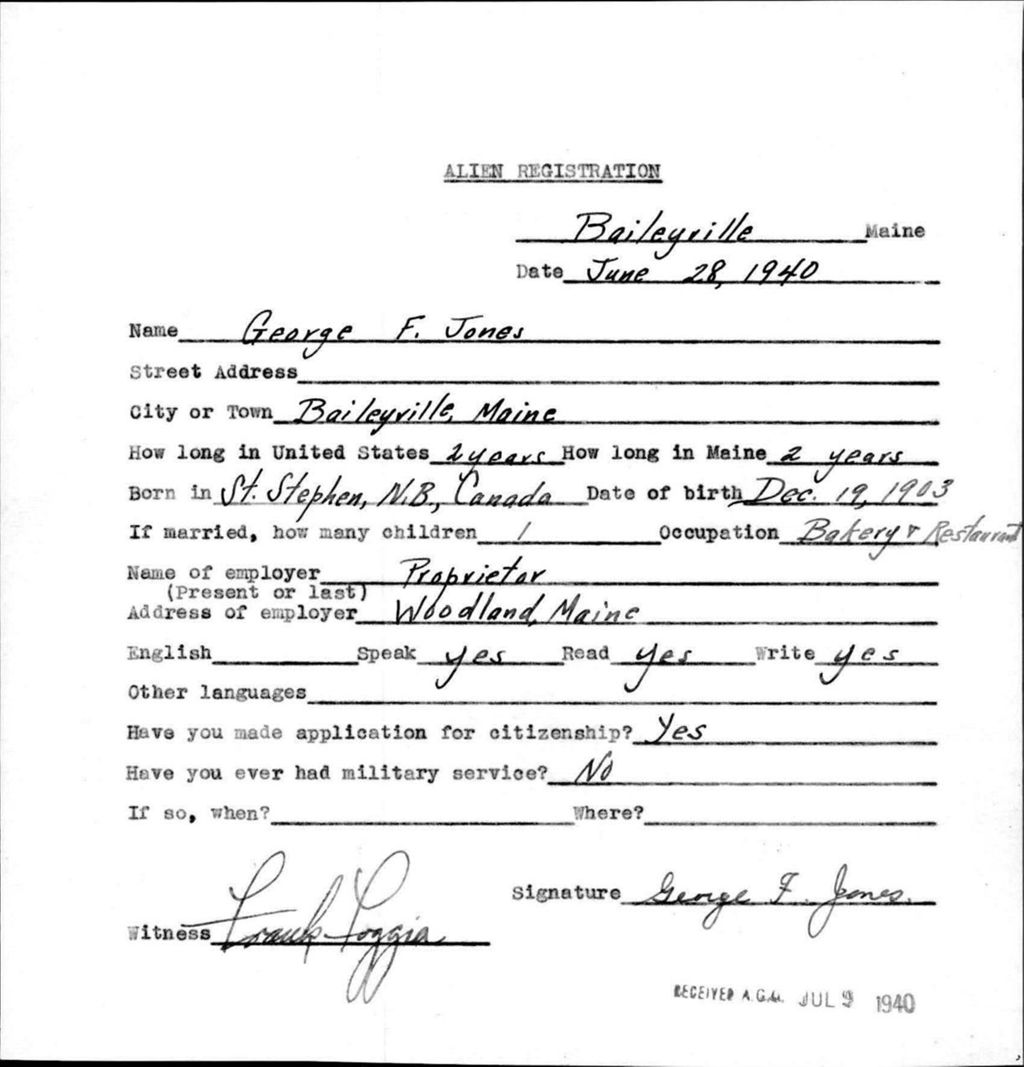 ALIEN REGISTRATION
Baileyville Maine
Date June 28, 1940
Name George F. Jones
Street Address
City or Town Baileyville, Maine
How long in United States 2 years How long in Maine 2 years
Born in St. Stephen, N.B., Canada Date of birth Dec. 19, 1903
If married, how many children 1 Occupation Bakery & Restaurant
Name of employer Proprietor
(Present or last)
Address of employer Woodland, Maine
English Speak yes Read yes Write yes
Other languages
Have you made application for citizenship? Yes
Have you ever had military service? No
If so, when? Where?
Signature George F. Jones
Witness Frank Foggia
RECEIVED A.G.O. JUL 9 1940